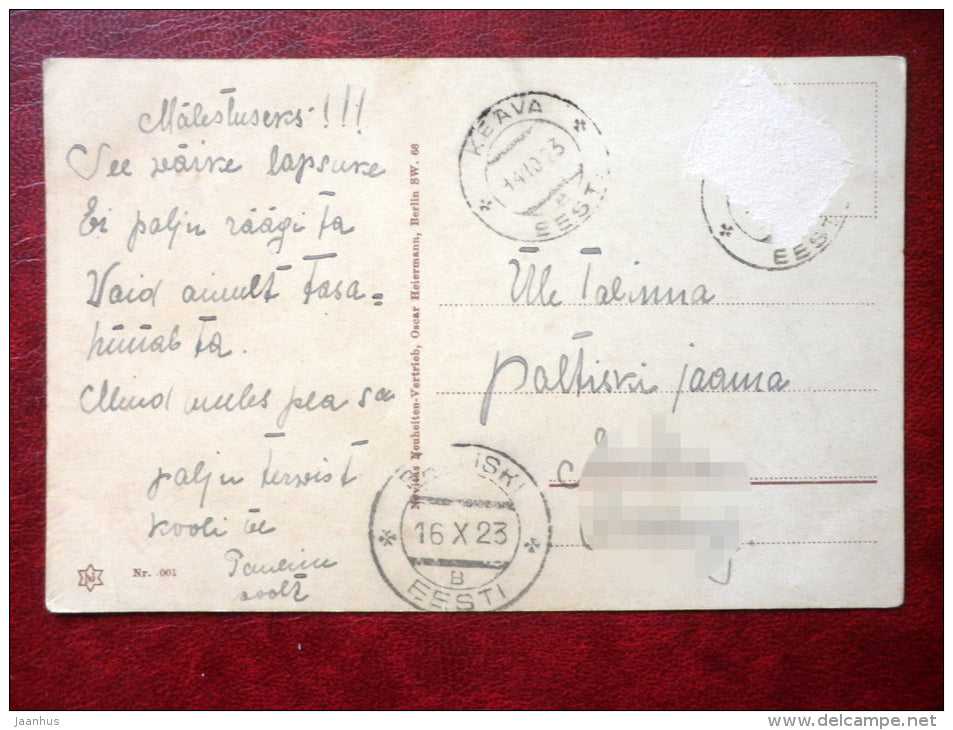 Mälestuseks!!!
See väike lapsuke
Ei palju räägi ta
Vaid ainult tasa=
hüüab ta.
Mind meeles pea sa
palju tervist
kooli
poolt
Nr. 001
Novitas Neuheiten-Vertrieb, Oscar Heiermann, Berlin SW. 68
KEAVA
14.10.23
EESTI
EESTI
Üle Talinna
paltiski jaama
16 X 23
B
EESTI
Jaanhus
www.delcampe.net